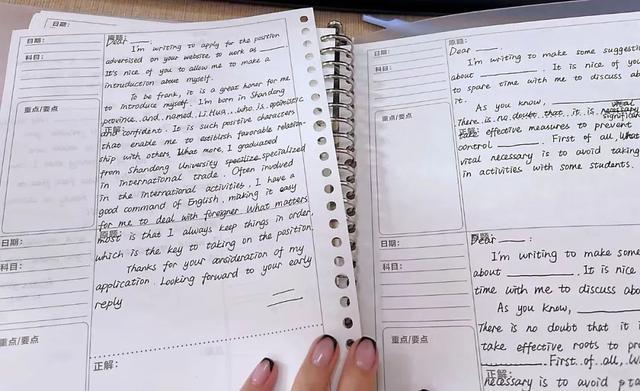 日期:
日期:
科目:
重点/要点
原题:
正解:
Dear ____,
I'm writing to apply for the position
advertised on your website to work as ____.
It's nice of you to allow me to make a
introduction about myself.
To be frank, it is a great honor for me
to introduce myself. I'm born in Shandong
province and named Li Hua, who is optimistic
and confident. It is such positive characters
that enable me to establish favorable relation-
ship with others. What more, I graduated
from Shandong University specialize specialized
in international trade. Often involved
in the international activities, I have a
good command of English, making it easy
for me to deal with foreigner. What matters
most is that I always keep things in order,
which is the key to taking on the position.
Thanks for your consideration of my
application. Looking forward to your early
reply
日期:
科目:
重点/要点
原题:
正解:
日期:
科目:
重点/要点
原题:
正解:
Dear ____.
I'm writing to make some suggesti
about ____. It is nice of you
to spare time with me to discuss abo
it.
As you know,
There is no doubt that it is necessary
vital
significan
take effective measures to prevent
control ____. First of all, 
vital necessary is to avoid taking
in activities with some students.
日期:
科目:
重点/要点
原题:
正解:
Dear ____:
I'm writing to make some
about ____. It is nice
time with me to discuss abo
As you know, ____
There is no doubt that it i
take effective roots to pr
____ First of all, W
necessary is to avoid